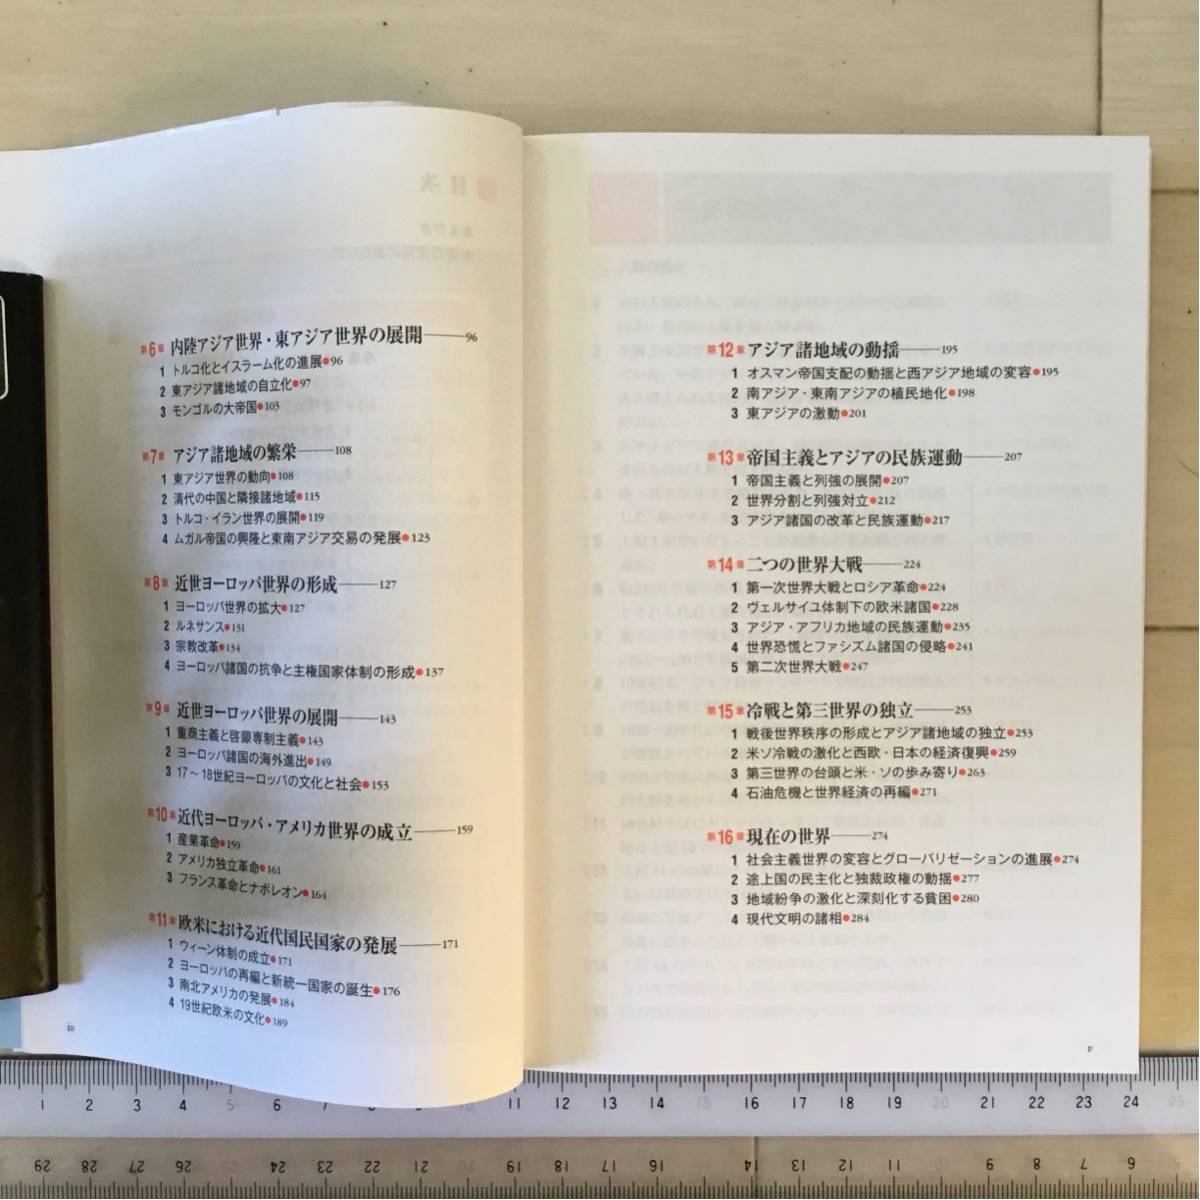 第6章 内陸アジア世界・東アジア世界の展開——96
1 トルコ化とイスラーム化の進展●96
2 東アジア諸地域の自立化●97
3 モンゴルの大帝国●103
第7章 アジア諸地域の繁栄——108
1 東アジア世界の動向●108
2 清代の中国と隣接諸地域●115
3 トルコ・イラン世界の展開●119
4 ムガル帝国の興隆と東南アジア交易の発展●123
第8章 近世ヨーロッパ世界の形成——127
1 ヨーロッパ世界の拡大●127
2 ルネサンス●131
3 宗教改革●134
4 ヨーロッパ諸国の抗争と主権国家体制の形成●137
第9章 近世ヨーロッパ世界の展開——143
1 重商主義と啓蒙専制主義●143
2 ヨーロッパ諸国の海外進出●149
3 17～18世紀ヨーロッパの文化と社会●153
第10章 近代ヨーロッパ・アメリカ世界の成立——159
1 産業革命●159
2 アメリカ独立革命●161
3 フランス革命とナポレオン●164
第11章 欧米における近代国民国家の発展——171
1 ウィーン体制の成立●171
2 ヨーロッパの再編と新統一国家の誕生●176
3 南北アメリカの発展●184
4 19世紀欧米の文化●189
iv
第12章 アジア諸地域の動揺——195
1 オスマン帝国支配の動揺と西アジア地域の変容●195
2 南アジア・東南アジアの植民地化●198
3 東アジアの激動●201
第13章 帝国主義とアジアの民族運動——207
1 帝国主義と列強の展開●207
2 世界分割と列強対立●212
3 アジア諸国の改革と民族運動●217
第14章 二つの世界大戦——224
1 第一次世界大戦とロシア革命●224
2 ヴェルサイユ体制下の欧米諸国●228
3 アジア・アフリカ地域の民族運動●235
4 世界恐慌とファシズム諸国の侵略●241
5 第二次世界大戦●247
第15章 冷戦と第三世界の独立——253
1 戦後世界秩序の形成とアジア諸地域の独立●253
2 米ソ冷戦の激化と西欧・日本の経済復興●259
3 第三世界の台頭と米・ソの歩み寄り●263
4 石油危機と世界経済の再編●271
第16章 現在の世界——274
1 社会主義世界の変容とグローバリゼーションの進展●274
2 途上国の民主化と独裁政権の動揺●277
3 地域紛争の激化と深刻化する貧困●280
4 現代文明の諸相●284
v
1 2 3 4 5 6 7 8 9 10 11 12 13 14 15 16 17 18 19 20 21 22 23 24 25
29 28 27 26 25 24 23 22 21 20 19 18 17 16 15 14 13 12 11 10 9 8 7 6 5